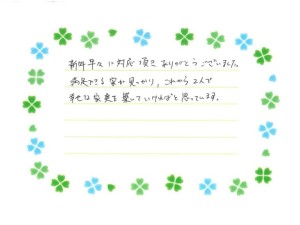 新年早々に対応頂きありがとうございました。
満足できる家が見つかり、これから2人で
幸せな家庭を築いていければと思っています。